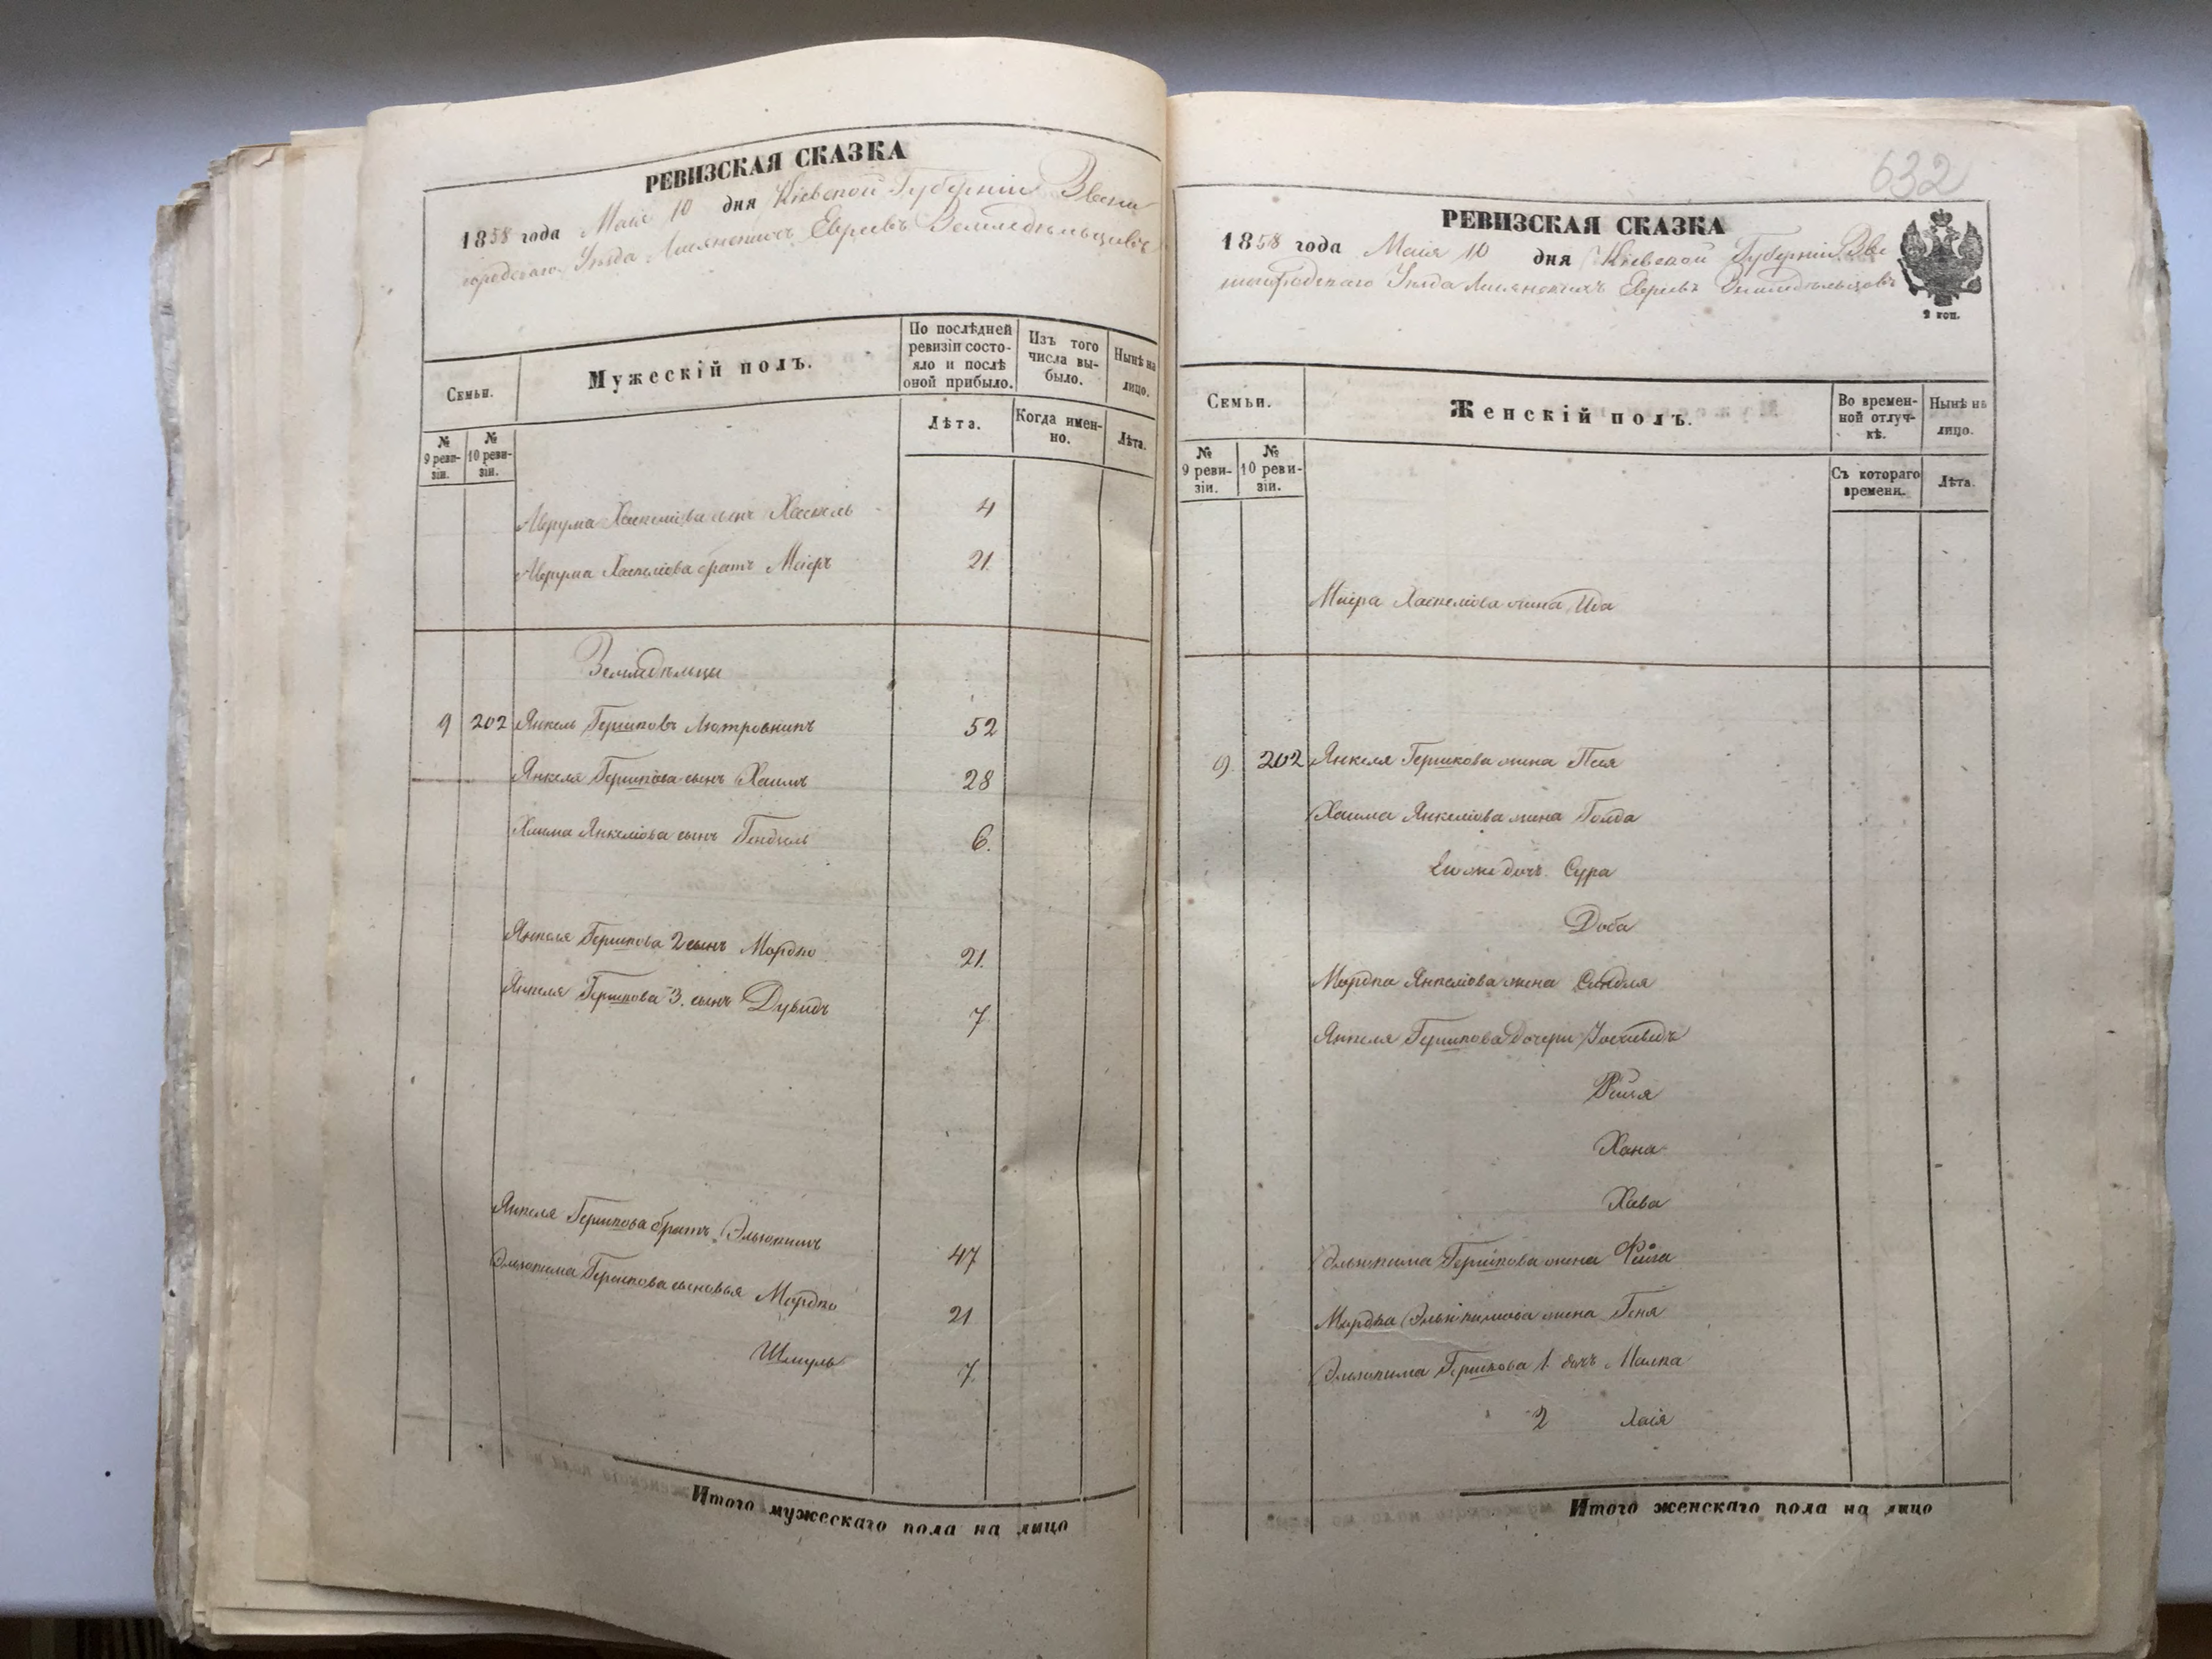 РЕВИЗСКАЯ СКАЗКА
1858 года Маія 10 дня Кіевской Губерніи Звени
городскаго Уѣзда Лисянскихъ Евреевъ Земледѣльцовъ
Семьи.
Мужескій полъ.
По послѣдней ревизіи состо-
яло и послѣ
оной прибыло.
Изъ того
числа вы-
было.
Нынѣ на
лицо.
№
9 реви-
зіи.
№
10 реви-
зіи.
Лѣта.
Когда имен-
но.
Лѣта.
Аврума Хаскеліова сынъ Хаскель 4
Аврума Хаскеліова братъ Меіеръ 21
Земледѣльцы
9 202 Янкель Гершковъ Лютровникъ 52
Янкеля Гершкова сынъ Хаимъ 28
Хаима Янкеліова сынъ Гендзель 6.
Янкеля Гершкова 2 сынъ Мордко 21.
Янкеля Гершкова 3. сынъ Дувидъ 7
Янкеля Гершкова братъ Эльюкимъ 47
Эльюкима Гершкова сыновья Мордко 21
Шмуль 7.
Итого мужескаго пола на лицо
632
РЕВИЗСКАЯ СКАЗКА
1858 года Маія 10 дня Кіевской Губерніи Зве
нигородскаго Уѣзда Лисянскихъ Евреевъ Земледѣльцовъ
2 коп.
Семьи.
Женскій полъ.
Во времен-
ной отлуч-
кѣ.
Нынѣ на
лицо.
№
9 реви-
зіи.
№
10 реви-
зіи.
Съ котораго
времени.
Лѣта.
Меіера Хаскеліова жена Ида
9. 202 Янкеля Гершкова жена Песя
Хаима Янкеліова жена Голда
Его же дочь Сура
Доба
Мордка Янкеліова жена Сендля
Янкеля Гершкова Дочери Іохевидъ
Рейзя
Хана
Хава
Эльюкима Гершкова жена Фейга
Мордка Эльюкимова жена Геня
Эльюкима Гершкова 1. дочь Малка
2 Лаія
Итого женскаго пола на лицо